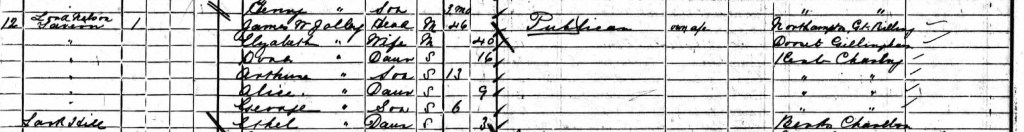 Son 3 mo " "
12 Lord Nelson Tavern 1 James W Jolley Head M 46 Publican own a/c Northampton, Gt Billing
Elizabeth " Wife M 40 Dorset Gillingham
" Daur S 16 Charlbury
" Arthur " Son S 13 " "
" Alice " Daur S 9 " "
" George " Son S 6 " "
Ethel " Daur S 3 Berks